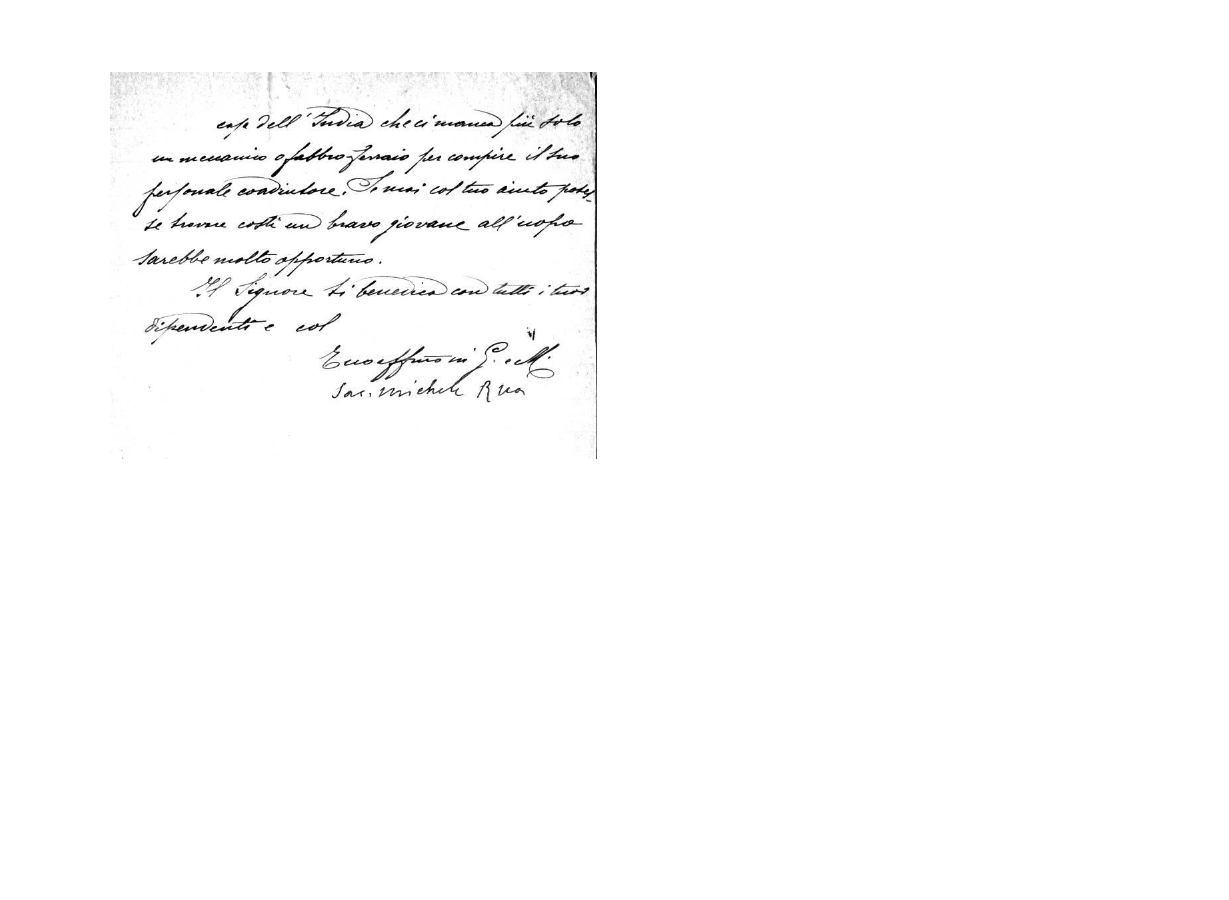 casa dell'India che ci manca più solo
un meccanico o fabbro-ferraio per compire il suo
personale coadiutore. Se mai col tuo aiuto potes-
se trovare costì un bravo giovane all'uopo
sarebbe molto opportuno.
Il Signore ti benedica con tutti i tuoi
dipendenti e col
Tuo affmo in G. e M.
Sac. Michele Rua